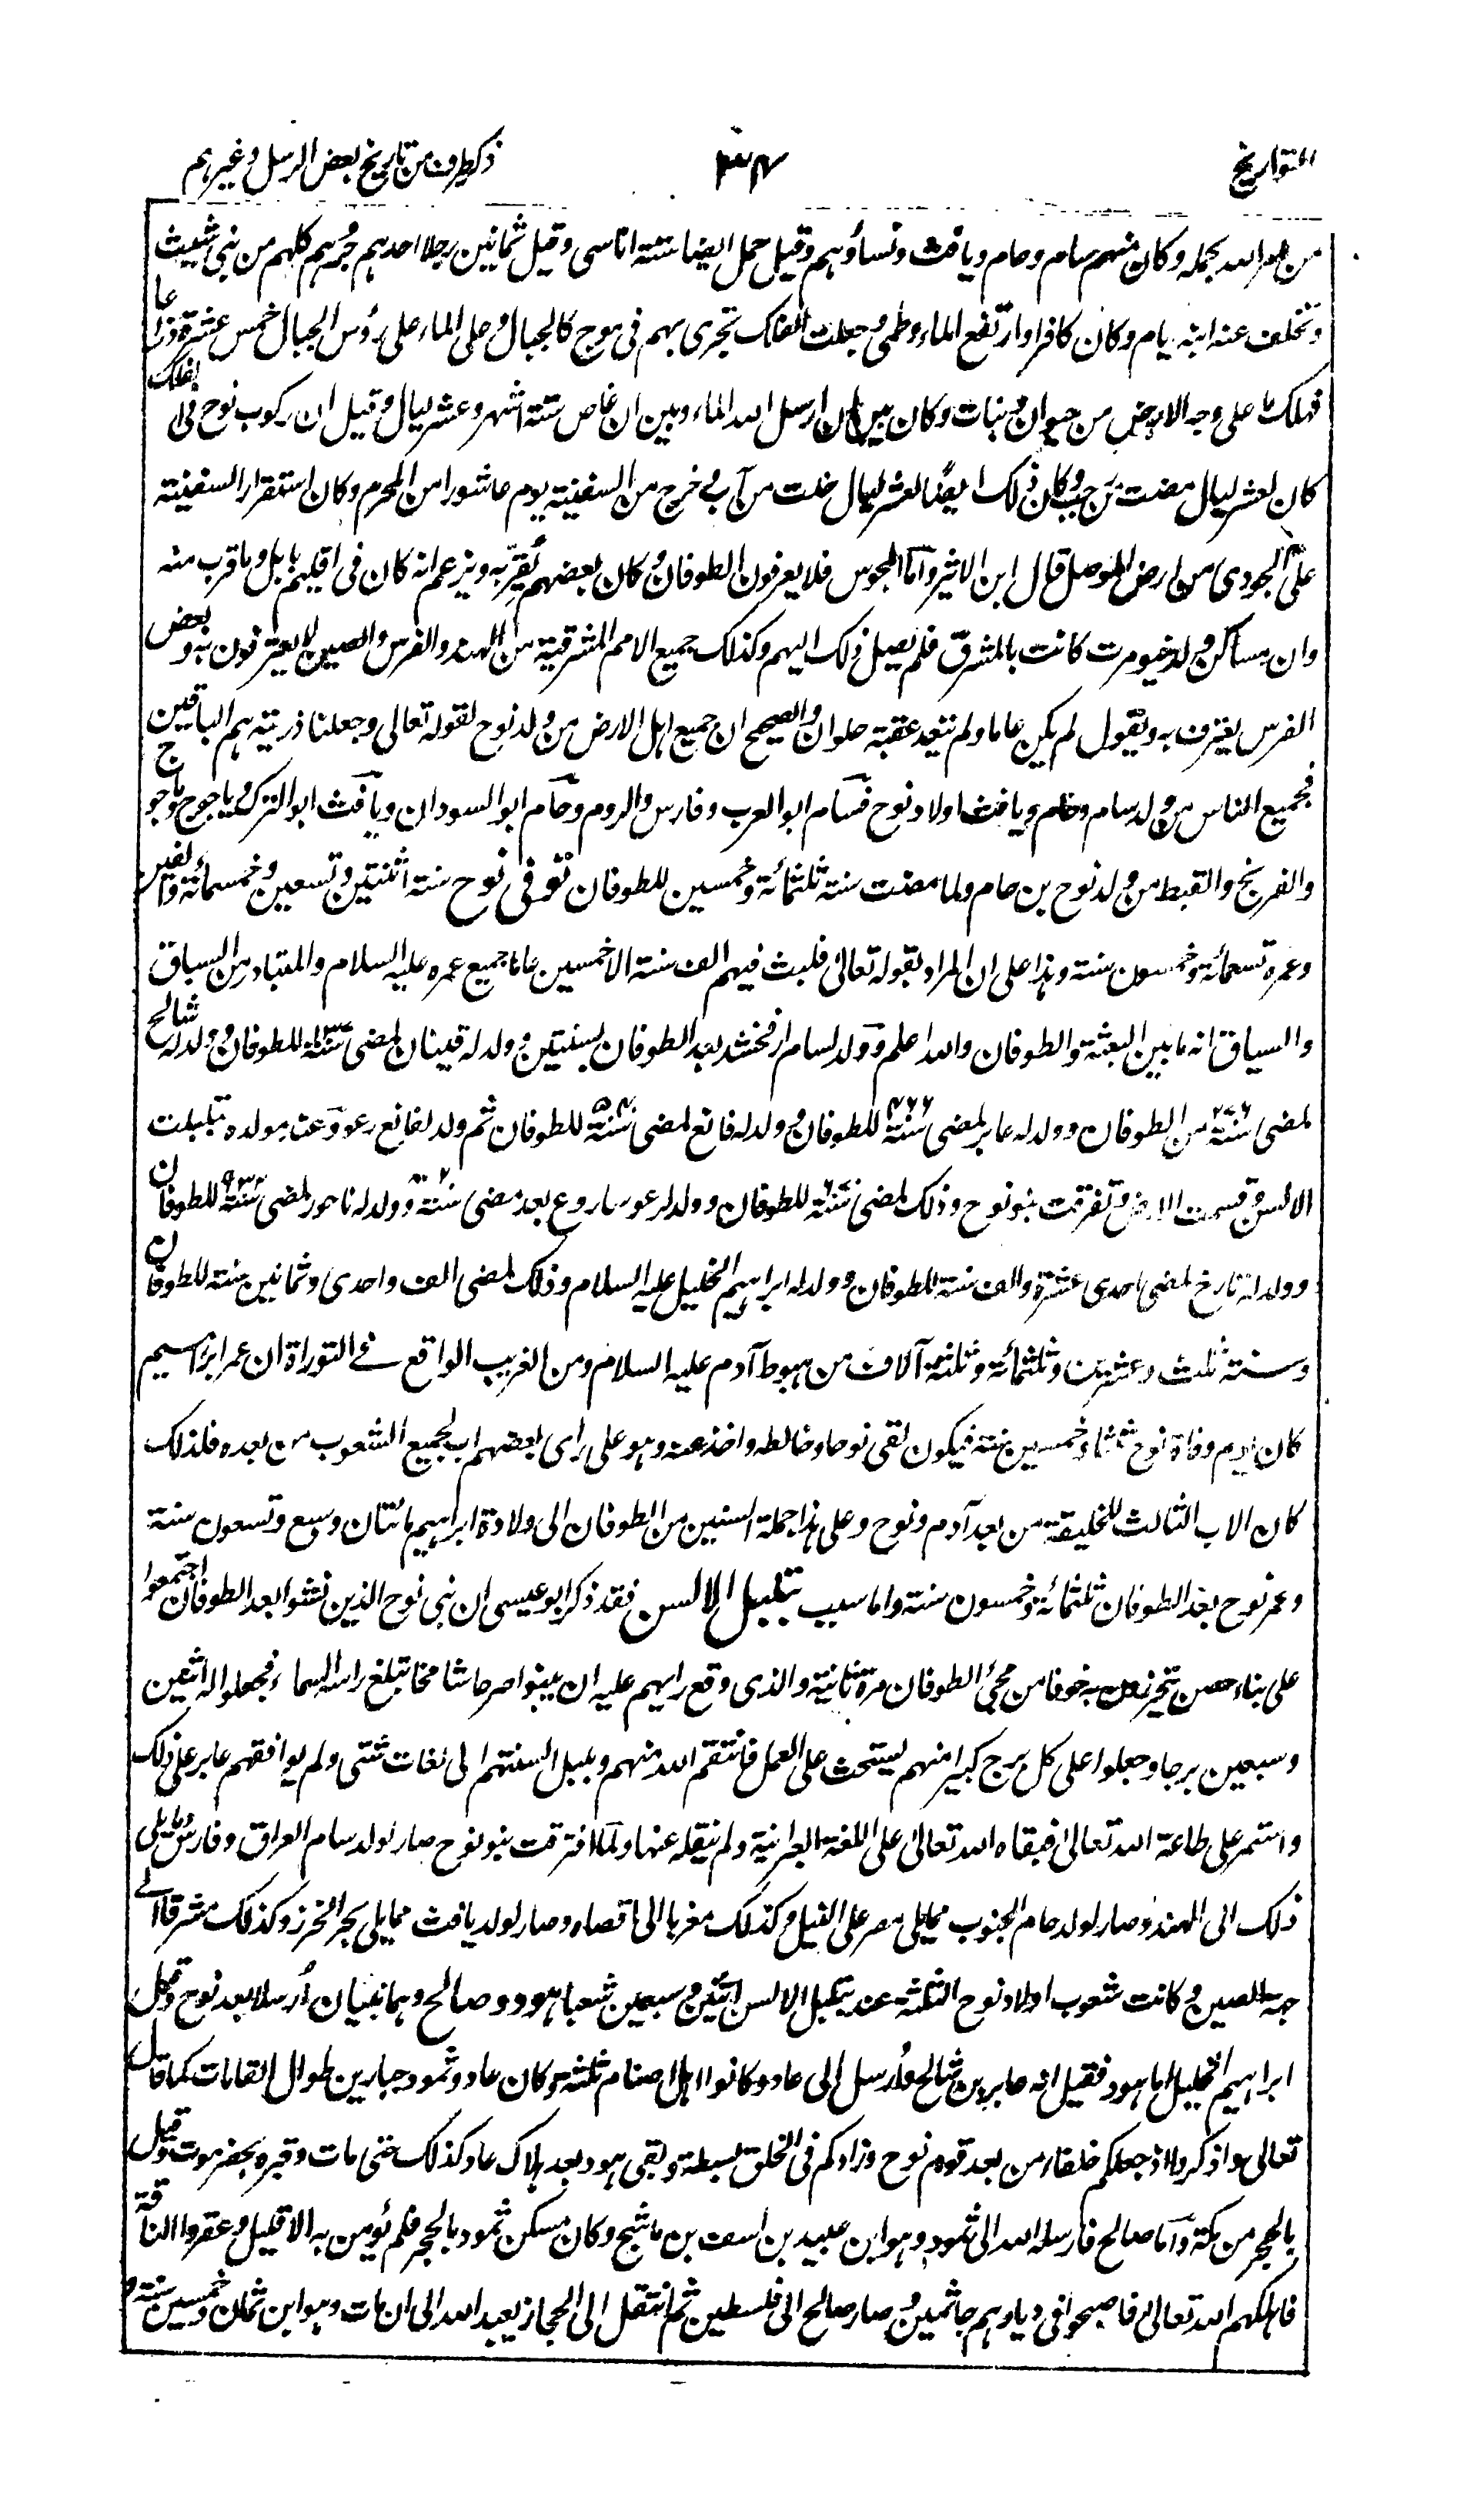 التواريخ ٣٤ ذكر طرف من تاريخ بعض الرسل وغيرهم
من امر الله بحمله وكان منهم سام وحام ويافث ونساؤهم وقيل حمل ايضا ستة اناسي وقيل ثمانين رجلا احدهم جرهم كلهم من بني شيث
وتخلف عنه ابنه يام وكان كافرا وارتفع الماء وطمى وجعلت الفلك تجري بهم في موج كالجبال وعلى الماء على رؤس الجبال خمس عشرة ذراعا
فهلك ما على وجه الارض من حيوان ونبات وكان بين ان ارسل الله الماء وبين ان غاض ستة اشهر وعشر ليال وقيل ان ركوب نوح في الفلك
كان لعشر ليال مضت من رجب وكان ذلك ايضا لعشر ليال خلت من آب وخرج من السفينة يوم عاشورا من المحرم وكان استقرار السفينة
على الجودي من ارض الموصل قال ابن الاثير واما المجوس فلا يعرفون الطوفان وكان بعضهم يقرّ به ويزعم انه كان في اقليم بابل وما قرب منه
وان مساكن ولد خيومرت كانت بالمشرق فلم يصل ذلك اليهم وكذلك جميع الامم المشرقية من الهند والفرس والصين لا يعترفون به وبعض
الفرس يعترف به ويقول لم يكن عاما ولم يتعد عقبة حلوان والصحيح ان جميع اهل الارض من ولد نوح لقوله تعالى وجعلنا ذريته هم الباقين
فجميع الناس من ولد سام وحام ويافث اولاد نوح فسام ابو العرب وفارس والروم وحام ابو السودان ويافث ابو الترك وياجوج وماجوج
والفرنج والقبط من ولد نوح بن حام ولما مضت سنة ثلثمائة وخمسين للطوفان توفى نوح سنة اثنتين وتسعين وخمسمائة والفين
وعمره تسعمائة وخمسون سنة وهذا على ان المراد بقوله تعالى فلبث فيهم الف سنة الا خمسين عاما جميع عمره عليه السلام والمتبادر من السباق
والسياق انه ما بين البعثة والطوفان والله اعلم وولد لسام ارفخشد بعد الطوفان بسنتين وولد له قينان لمضى سنة للطوفان وولد له شالح
لمضى سنة من الطوفان وولد له عابر لمضى سنة للطوفان وولد له فانع لمضى سنة للطوفان ثم ولد لفانع رعو وعند مولده تبلبلت
الالسن وقسمت الارض وتفرقت بنو نوح وذلك لمضى سنة للطوفان وولد لرعو ساروع بعد مضى سنة وولد له ناحور لمضى سنة للطوفان
وولد له تارخ لمضى احدى عشرة والف سنة للطوفان وولد له ابراهيم الخليل عليه السلام وذلك لمضى الف واحدى وثمانين سنة للطوفان
وسنة ثلث وعشرين وثلثمائة وثلثة آلاف من هبوط آدم عليه السلام ومن الغريب الواقع في التوراة ان عمر ابراهيم
كان يوم وفاة نوح ثلثا وخمسين سنة فيكون لقى نوحا وخالطه واخذ عنه وهو على راى بعضهم اب لجميع الشعوب من بعده فلذلك
كان الاب الثالث للخليقة من بعد آدم ونوح وعلى هذا جملة السنين من الطوفان الى ولادة ابراهيم مائتان وسبع وتسعون سنة
وعمر نوح بعد الطوفان ثلثمائة وخمسون سنة واما سبب تبلبل الالسن فقد ذكر ابو عيسى ان بني نوح الذين نشوا بعد الطوفان اجتمعوا
على بناء حصن يتحرزون به خوفا من مجئ الطوفان مرة ثانية والذى وقع رايهم عليه ان يبنوا صرحا شامخا تبلغ راسه السماء فجعلوا له اثنين
وسبعين برجا وجعلوا على كل برج كبيرا منهم يستحث على العمل فانتقم الله منهم وبلبل السنتهم الى لغات شتى ولم يوافقهم عابر على ذلك
واستمر على طاعة الله تعالى فبقاه الله تعالى على اللغة العبرانية ولم ينقله عنها ولما افترقت بنو نوح صار لولد سام العراق وفارس وما يلى
ذلك الى الهند وصار لولد حام الجنوب مما يلى مصر على النيل وكذلك مغربا الى اقصاه وصار لولد يافث مما يلى بحر الخزر وكذلك مشرقا الى
جهة الصين وكانت شعوب اولاد نوح الثلثة عند تبلبل الالسن اثنين وسبعين شعبا هود وصالح وهما نبيان أرسلا بعد نوح وقبل
ابراهيم الخليل اما هود فقيل انه عابر بن شالح وارسل الى عاد وكانوا اهل اصنام ثلثة وكان عاد وثمود جبارين طوال القامات كما قال
تعالى واذكروا اذ جعلكم خلفاء من بعد قوم نوح وزادكم في الخلق بسطة وبقى هود بعد هلاك عاد كذلك حتى مات وقبره بحضرموت وقيل
بالحجر من مكة واما صالح فارسله الله الى ثمود وهو ابن عبيد بن اسف بن ماشج وكان مسكن ثمود بالحجر فلم يؤمن به الا قليل وعقروا الناقة
فاهلكهم الله تعالى فاصبحوا في ديارهم جاثمين وصار صالح الى فلسطين ثم انتقل الى الحجاز يعبد الله الى ان مات وهو ابن ثمان وخمسين سنة